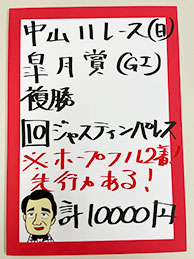 中山11レース(日)
皐月賞(GI)
複勝
10 ジャスティンパレス
※ホープフル2着!
先行力ある!
計10000円